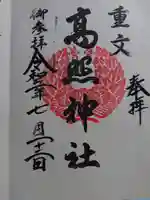 奉拝
重文
高照神社
令和二年七月二十二日
御参拝